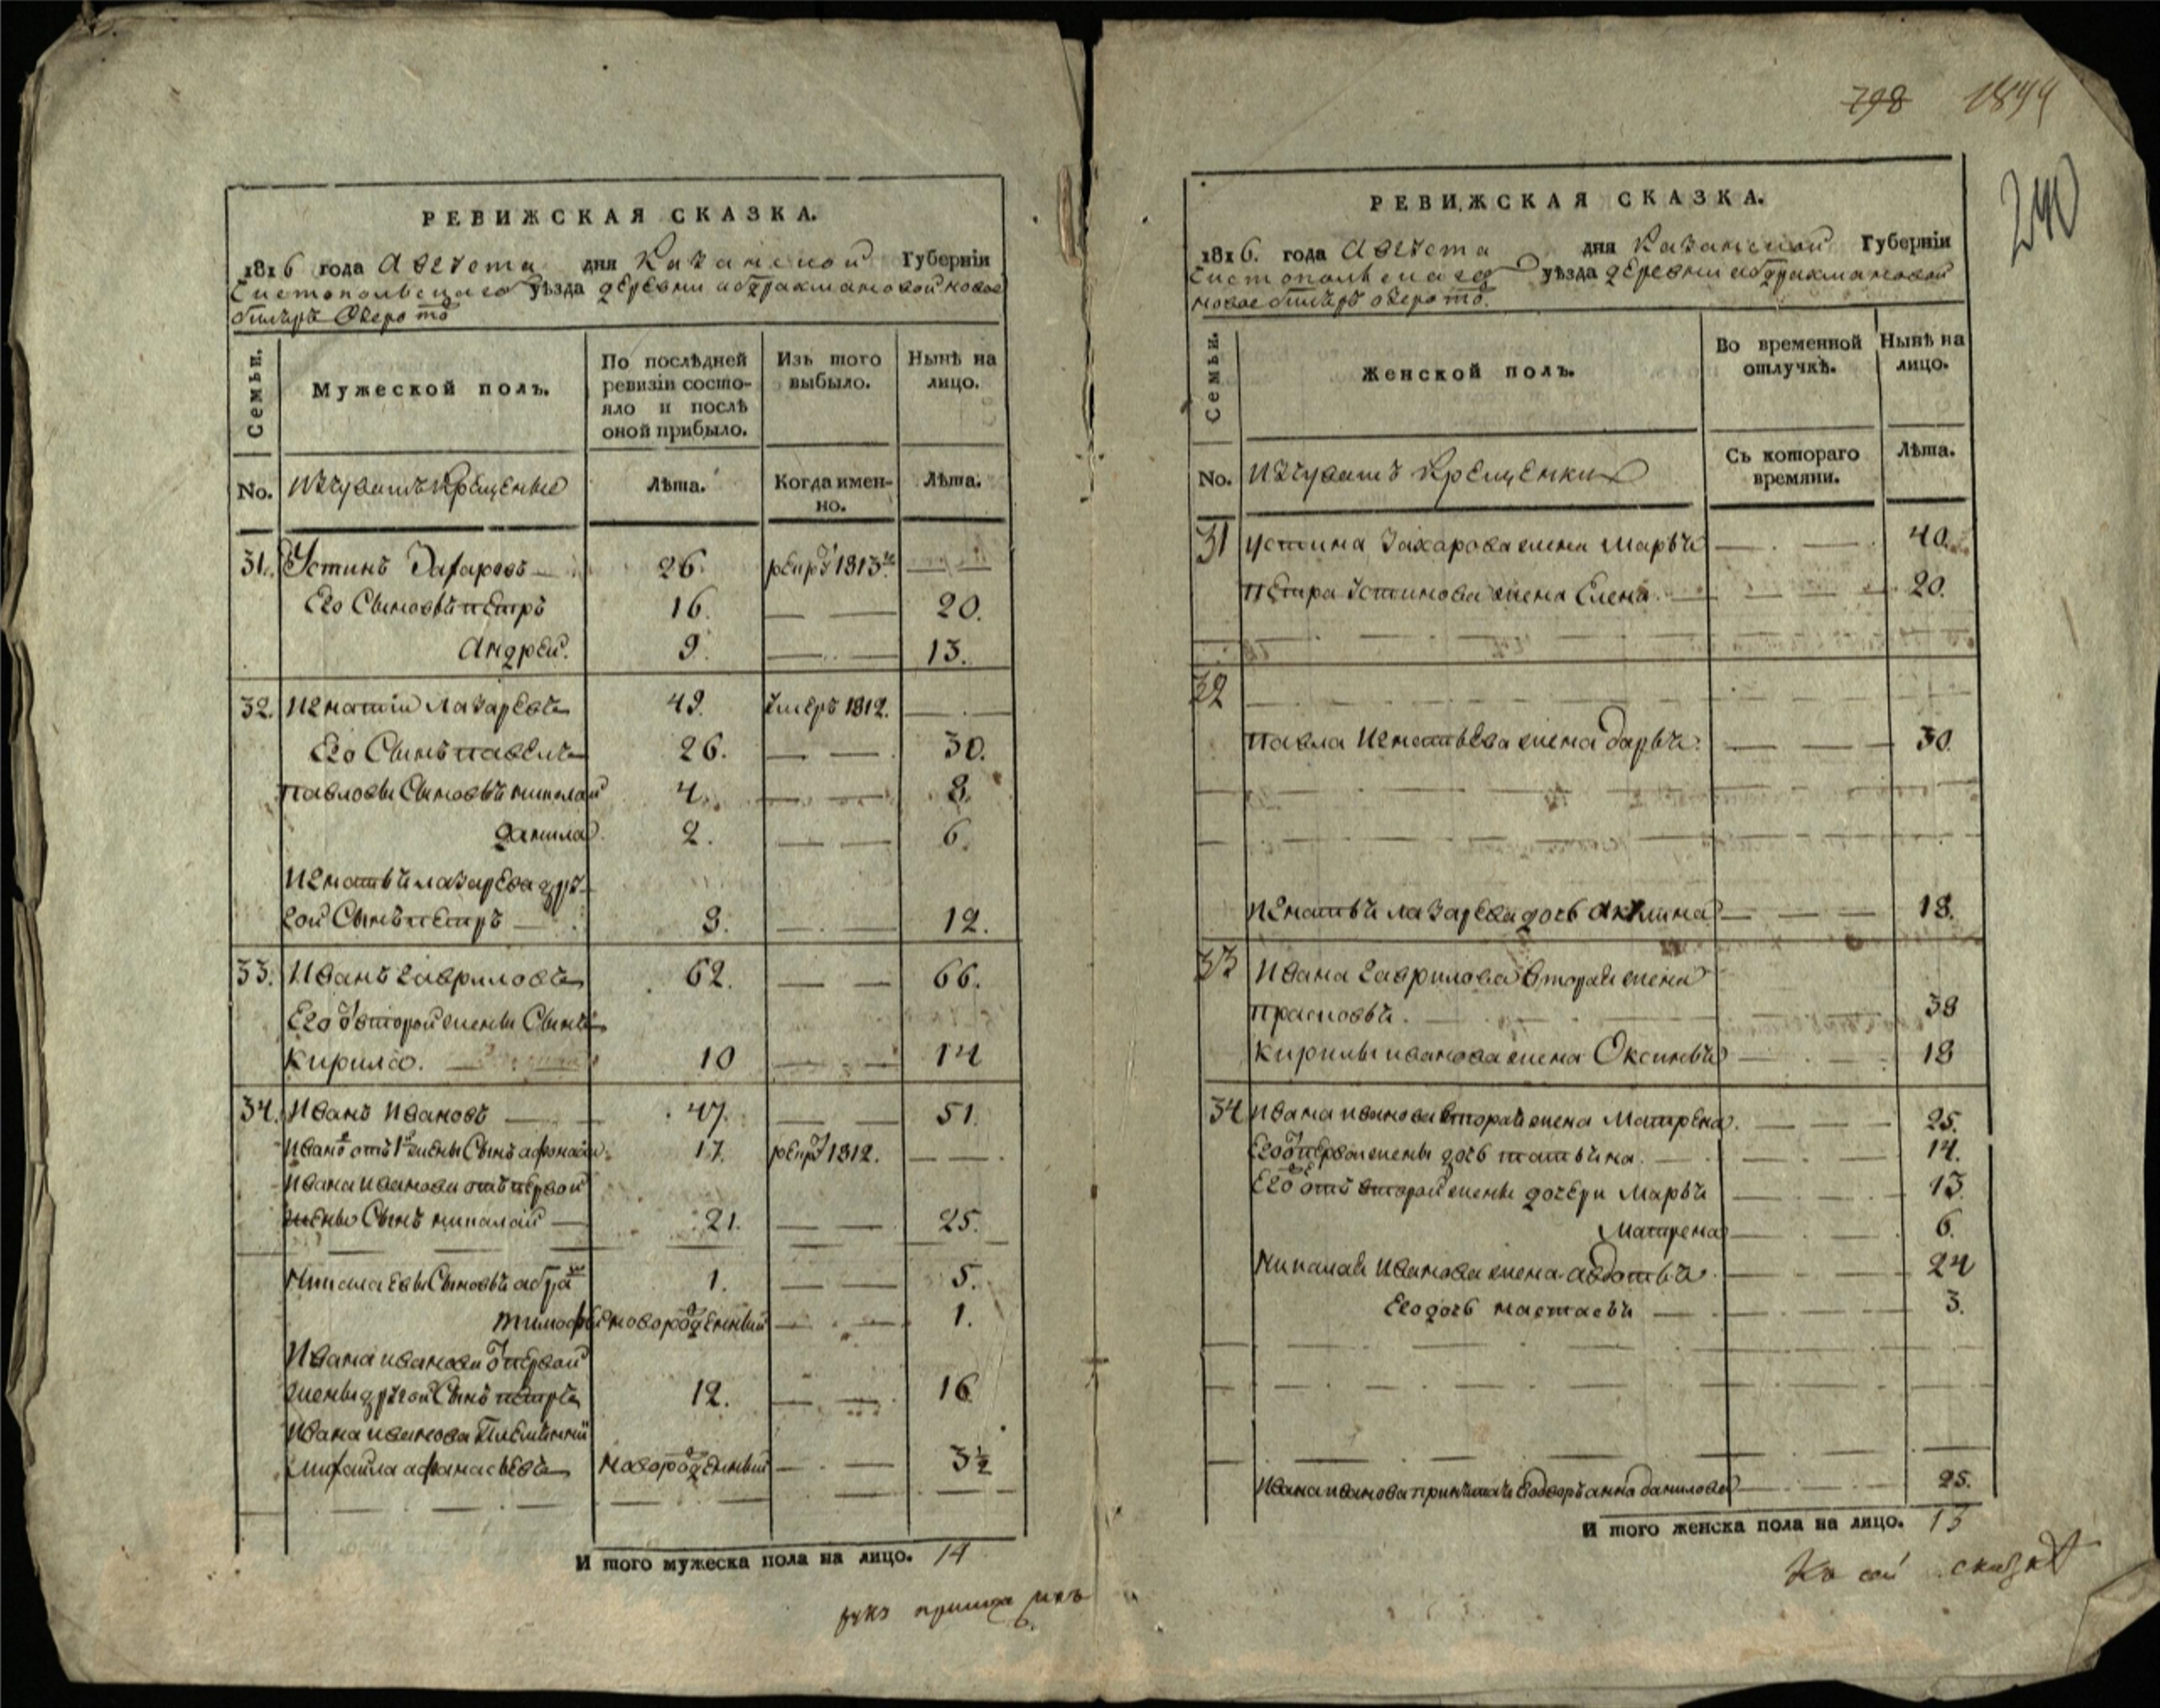 РЕВИЖСКАЯ СКАЗКА.
1816 года Августа дня Казанской Губернiи
Чистопольскаго уѣзда деревни абдрахмановой новое
озеро тo
Семьи.
Мужеской полъ.
По послѣдней ревизiи состояло и послѣ оной прибыло.
Изъ того выбыло.
Нынѣ на лицо.
No. изчувашъ Крещеные
Лѣта.
Когда именно.
Лѣта.
31. Устинъ Захаровъ 26. рекрут 1813го
Его Сыновья петръ 16. 20.
Андрей. 9. 13.
32. Игнатiй Лазаревъ 49. умеръ 1812.
Его Сынъ павелъ 26. 30.
павловы Сыновья николай 4. 8.
данила 2. 6.
Игнатья лазарева дру
гой Сынъ петръ 8. 12.
33. Иванъ гавриловъ 62. 66.
Его от второй жены Сынъ
кирило. 10 14
34. Иванъ Ивановъ 47. 51.
Иванъ отъ 1й жены Сынъ афонасей 17. рекрут 1812.
Ивана Иванова отъ первой
жены Сынъ николай 21. 25.
Николаевы Сыновья абра 1. 5.
тимофей новорожденный 1.
Ивана иванова от первой
жены другой Сынъ петръ 12. 16
Ивана иванова Племянник
михайла афанасьевъ новорожденный 3 1/2
И того мужеска пола на лицо. 14
798 1844
240
РЕВИЖСКАЯ СКАЗКА.
1816. года Августа дня Казанской Губернiи
Чистопольскаго уѣзда деревни абдрахмановой
новое озеро то.
Семьи.
Женской полъ.
Во временной отлучкѣ.
Нынѣ на лицо.
No. изчувашъ Крещенки
Съ котораго времяни.
Лѣта.
31 устина Захарова жена марья 40.
петра Устинова жена Елена 20.
32
павла Игнатьева жена дарья 30.
Игнатья лазарева дочь Акулина 18.
33 Ивана гаврилова вторая жена
прасковья. 38
кирилы иванова жена Оксинья 18
34 Ивана иванова вторая жена Матрена. 25.
Его от первой жены дочь татьяна. 14.
Его отъ второй жены дочери Марья 13
матрена 6.
Николая Иванова жена авдотья 24
Его дочь настасья 3.
анна данилова 25.
И того женска пола на лицо. 13
Къ сей сказкѣ